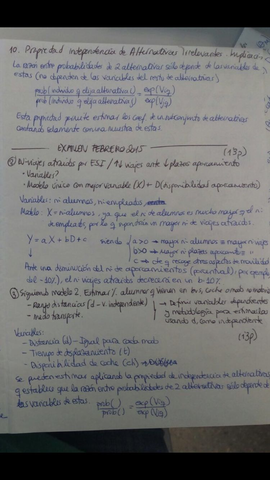 10. Propiedad Independencia de Alternativas Irrelevantes. Implicaciones
La razón entre probabilidades de 2 alternativas sólo depende de las variables de
estas (no dependen de las variables del resto de alternativas)
prob(individuo q elija alternativa i) = exp(Viq)
prob(individuo q elija alternativa j) exp(Vjq)
Esta propiedad permite estimar los coef. de un subconjunto de alternativas
contando solamente con una muestra de estas.
EXAMEN FEBRERO 2015
(13p)
② Nº viajes atraídos por ESI / ↑↓ viajes ante ↓ plazas aparcamiento
• Variables?
• Modelo único con mejor variable (X) + D (disponibilidad aparcamiento)
Variables: nº alumnos, nº empleados
Modelo: X = nº alumnos, ya que el nº de alumnos es mucho mayor q el nº
de empleados, por lo q aportarán un mayor nº de viajes atraídos.
Y = a X + b D + c siendo a>0 → mayor nº alumnos = mayor nº viajes
b>0 → mayor nº plazas aparcam. =
c → cte q recoge otros aspectos de movilidad
Ante una disminución del nº de aparcamientos (porcentual): por ejemplo
del -10%), el nº viajes atraídos decrecería en un b·10%.
Siguiendo modelo 2. Estimar % alumnos q vienen en bus, coche o moto
- Rango distancias (d → v. independiente)
- modo transporte.
→ Definir variables dependientes
y metodología para estimarlas
usando d como independiente
(13p)
Variables:
- Distancia (d) → Igual para cada modo
- Tiempo de desplazamiento (t)
- Disponibilidad de coche (ch) →
Se pueden estimar aplicando la propiedad de independencia de alternativas
y establecer que la razón entre probabilidades de 2 alternativas sólo depende de
las variables de estas. prob( ) = exp(Viq)
prob( ) exp(Vjq)